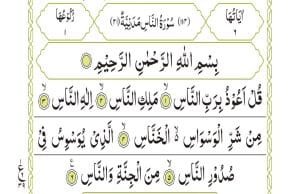 اٰيَاتُهَا ٦ (١١٤) سُوْرَةُ النَّاسِ مَدَنِيَّةٌ (٢١) رُكُوْعُهَا ١
بِسْمِ اللّٰهِ الرَّحْمٰنِ الرَّحِيْمِ
قُلْ اَعُوْذُ بِرَبِّ النَّاسِ ۝١ مَلِكِ النَّاسِ ۝٢ اِلٰهِ النَّاسِ ۝٣
مِنْ شَرِّ الْوَسْوَاسِ ۙ الْخَنَّاسِ ۝٤ الَّذِيْ يُوَسْوِسُ فِيْ
صُدُوْرِ النَّاسِ ۝٥ مِنَ الْجِنَّةِ وَالنَّاسِ ۝٦